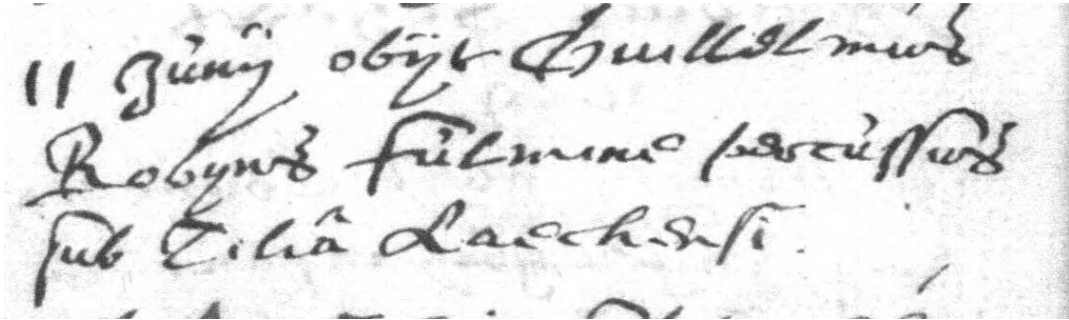 11 Junij obijt Guillelmus
Robyns fulmine percussus
sub Tiliâ Laechensi.